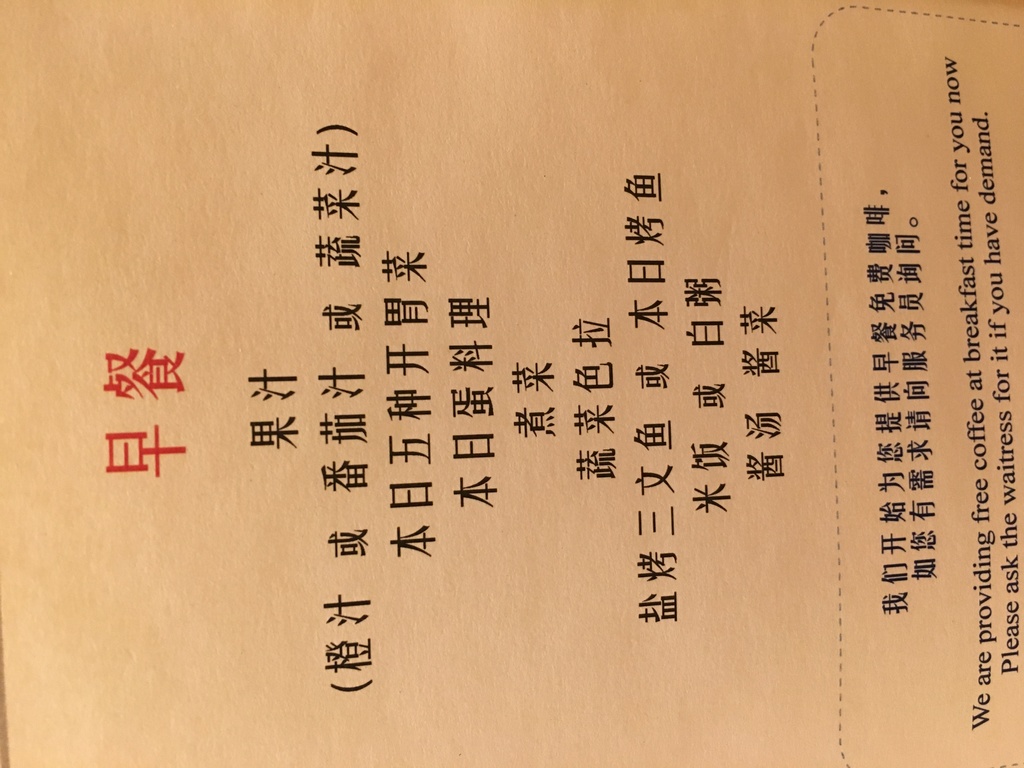 早餐
果汁
(橙汁 或 番茄汁 或 蔬菜汁)
本日五种开胃菜
本日蛋料理
煮菜
蔬菜色拉
盐烤三文鱼 或 本日烤鱼
米饭 或 白粥
酱汤 酱菜
我们开始为您提供早餐免费咖啡，
如您有需求请向服务员询问。
We are providing free coffee at breakfast time for you now
Please ask the waitress for it if you have demand.